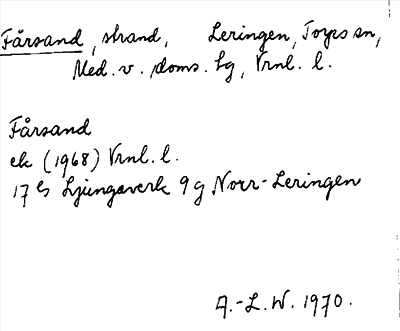 Fårsand, strand, Leringen, Torps sn,
Med. v. doms. lg, Vrnl. l.
Fårsand
ek (1968) Vrnl. l.
17 G Ljungaverk 9 g Norr-Leringen
A.-L. W. 1970.